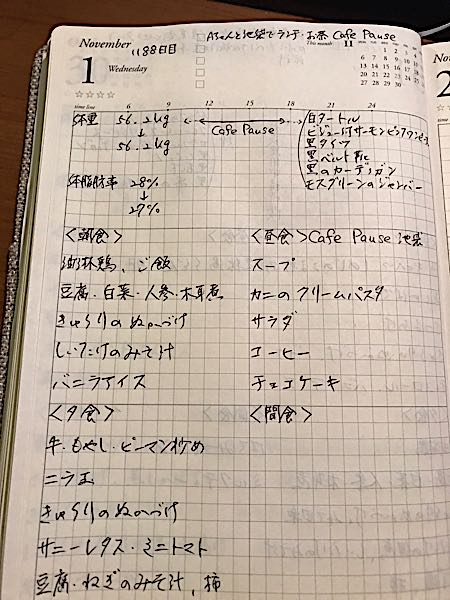 Aちゃんと池袋でランチ・お茶 Cafe Pause
November
1188日目
This month 11
1
Wednesday
time line 6 9 12 15 18 21 24
体重 56.2kg
↓
56.2kg
体脂肪率 28%
↓
27%
Cafe Pause
白タートル
ビジュー付サーモンピンクワンピース
黒タイツ
黒ベルト靴
黒のカーディガン
モスグリーンのジャンパー
<朝食>
油淋鶏、ご飯
豆腐・白菜・人参・木耳煮
きゅうりのぬかづけ
しいたけのみそ汁
バニラアイス
<昼食>Cafe Pause 池袋
スープ
カニのクリームパスタ
サラダ
コーヒー
チョコケーキ
<夕食>
牛・もやし・ピーマン炒め
ニラ玉
きゅうりのぬかづけ
サニーレタス・ミニトマト
豆腐・ねぎのみそ汁、柿
<間食>